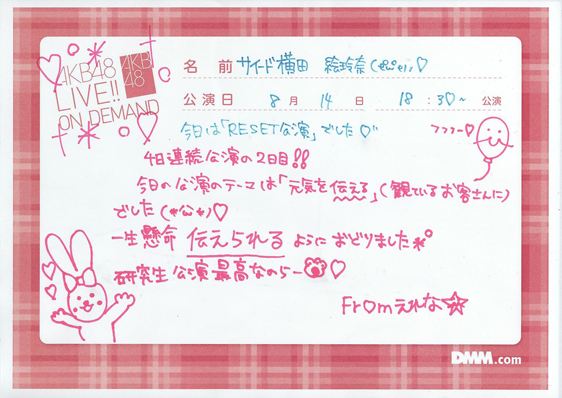 AKB48
LIVE!!
ON DEMAND
AKB
48
名 前 サイード横田 絵玲奈(*^ω^*)♡
公演日 8月 14日 18:30~ 公演
今日は「RESET公演」でした♡"
フフフー♡
4日連続公演の2日目!!
今日の公演のテーマは「元気を伝える」(観ているお客さんに)
でした(*^ω^*)♡
一生懸命 伝えられる ようにおどりました*°
研究生公演最高なのらー♡
Fromえれな☆
DMM.com